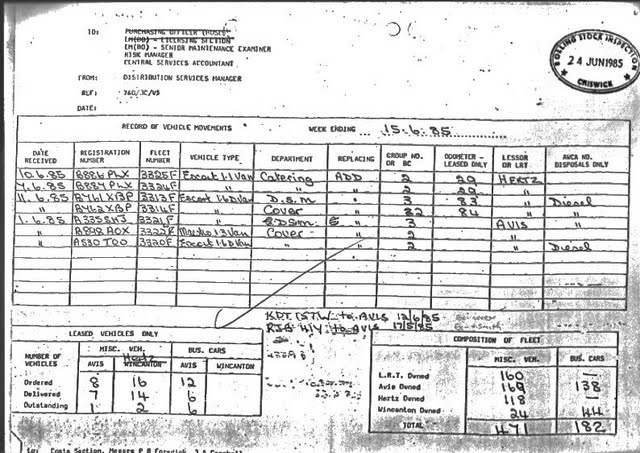 TO: PURCHASING OFFICER (BUSES)
EM(BO) - LICENSING SECTION
EM(BO) - SENIOR MAINTENANCE EXAMINER
RISK MANAGER
CENTRAL SERVICES ACCOUNTANT
FROM: DISTRIBUTION SERVICES MANAGER
REF: 760/JC/VS
DATE:
ROLLING STOCK INSPECTION
24 JUN 1985
CHISWICK
RECORD OF VEHICLE MOVEMENTS WEEK ENDING 15.6.85
DATE RECEIVED REGISTRATION NUMBER FLEET NUMBER VEHICLE TYPE DEPARTMENT REPLACING GROUP NO. OR BC ODOMETER - LEASED ONLY LESSOR OR LRT AWCR NO. DISPOSALS ONLY
10.6.85 B886 PLX 3325F Escort 1.1 Van Catering ADD 2 29 HERTZ
7.6.85 B887 PLX 3324F " " " 2 29 "
11.6.85 B761 XBP 3313F Escort 1.6D Van D.S.M " 3 83 " Diesel
" B762 XBP 3314F " Cover " 84 "
1.6.85 3321F " " 3 AVIS
" B898 AOX 3322F 1.3 Van Cover " 2 "
" A530 TOO 3320F Escort 1.6D Van " " 2 " Diesel
to AVIS 12/6/85
to AVIS 17/5/85
LEASED VEHICLES ONLY
NUMBER OF VEHICLES MISC. VEH. BUS. CARS
AVIS Hertz WINCANTON AVIS WINCANTON
Ordered 8 16 12
Delivered 7 14 6
Outstanding 1 2 6
COMPOSITION OF FLEET
MISC. VEH. BUS. CARS
L.R.T. Owned 160 —
Avis Owned 169 138
Hertz Owned 118 —
Wincanton Owned 24 44
TOTAL 471 182
To: Costs Section, Messrs P R